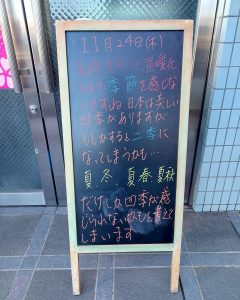 11月24日(木)
温暖化
季節を感じな
いですね 日本は美しい
四季がありますが
もしかすると二季に
なってしまうかも…
夏、冬、夏春、夏秋
だけしか四季が感
じられないかもと考えて
しまいます